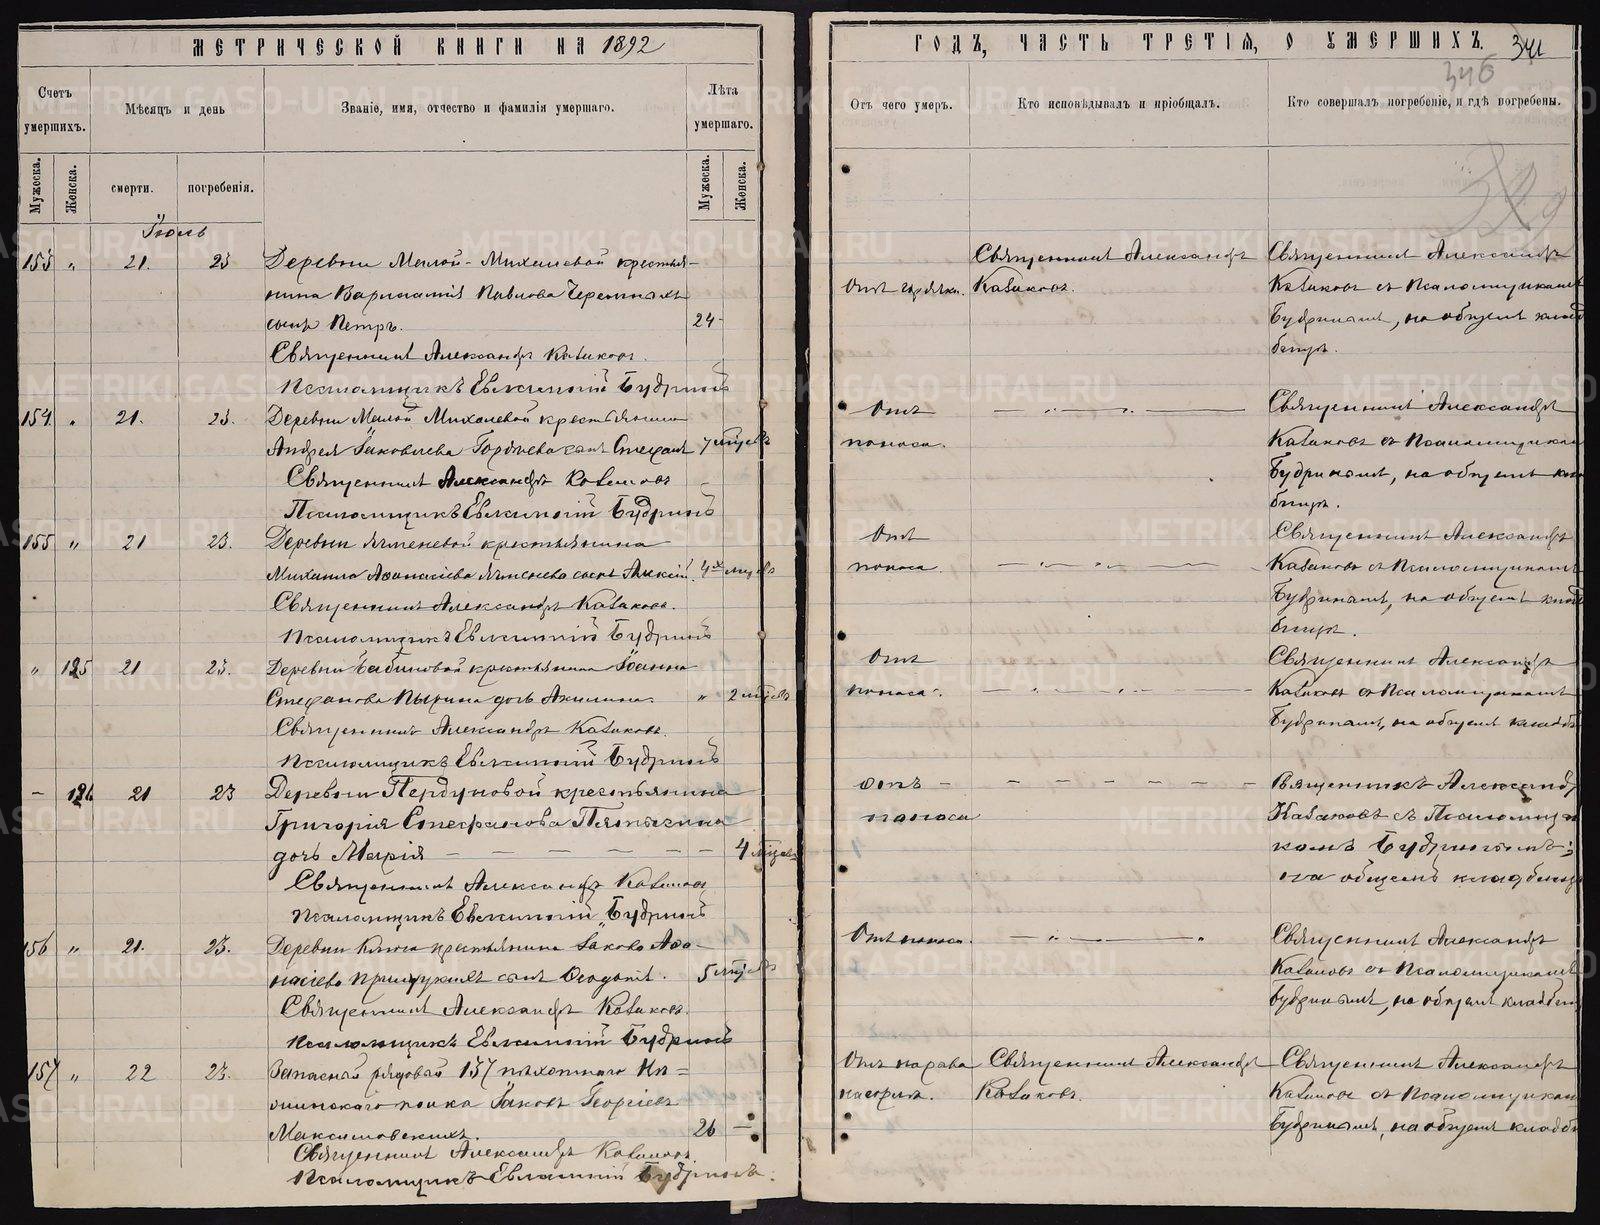 МЕТРИЧЕСКОЙ КНИГИ НА 1892
Счетъ умершихъ.
Мѣсяцъ и день
Званіе, имя, отчество и фамилія умершаго.
Лѣта умершаго.
Мужеска.
Женска.
смерти.
погребенія.
Мужеска.
Женска.
Іюль
153 " 21. 23 Деревни Малой-Михалевой крестья-
нина Варлаамія Павлова Черемныхъ
сынъ Петръ. 24-
Священникъ Александръ Казаковъ.
Псаломщикъ Евлампій Будринъ
154. " 21. 23. Деревни Малой Михалевой крестьянина
Андрея Іаковлева Гордѣева сынъ Стефанъ 7 мѣсяцъ
Священникъ Александръ Казаковъ
Псаломщикъ Евлампій Будринъ
155 " 21 23. Деревни Ячменевой крестьянина
Михаила Аѳанасіева Ячменева сынъ Алексій. 4х мѣсяц
Священникъ Александръ Казаковъ.
Псаломщикъ Евлампій Будринъ
" 125 21 23. Деревни Бабиновой крестьянина Іоанна
Стефанова Пырина дочь Акилина. " 2 мѣсяцъ
Священникъ Александръ Казаковъ.
Псаломщикъ Евлампій Будринъ
- 126 21 23 Деревни Пердуновой крестьянина
Григорія Стефанова Пятыгина
дочь Марія — — — — — — — 4 мѣсяца
Священникъ Александръ Казаковъ
Псаломщикъ Евлампій Будринъ
156 " 21. 23. Деревни Ключа крестьянина Іакова Аѳа-
насіева сынъ Ѳеодотъ. 5 мѣсяцъ
Священникъ Александръ Казаковъ.
Псаломщикъ Евлампій Будринъ
157 " 22 23. Запасный рядовой 157 пѣхотнаго Им-
полка Іаковъ Георгіевъ
Максимовскихъ. 26 —
Священникъ Александръ Казаковъ.
Псаломщикъ Евлампій Будринъ.
ГОДЪ, ЧАСТЬ ТРЕТІЯ, О УМЕРШИХЪ. 341
346
329
Отъ чего умеръ.
Кто исповѣдывалъ и пріобщалъ.
Кто совершалъ погребеніе, и гдѣ погребены.
Священникъ Александръ Священникъ Александръ
Отъ горячки. Казаковъ. Казаковъ съ Псаломщикомъ
Будринымъ, на общемъ клад
бищѣ.
Отъ — " " — Священникъ Александръ
поноса. Казаковъ съ Псаломщиком
Будринымъ, на общемъ кла
бищѣ.
Отъ Священникъ Александръ
поноса. — " " — Казаковъ съ Псаломщикомъ
Будринымъ, на общемъ клад
бищѣ.
Отъ Священникъ Александръ
поноса. — " " — Казаковъ съ Псаломщикомъ
Будринымъ, на общемъ кладб
отъ — — — — — — — Священникъ Александр
поноса Казаковъ съ Псаломщи
комъ Будринымъ;
на общемъ кладбищѣ
Отъ поноса. — " — " Священникъ Александръ
Казаковъ съ Псаломщикомъ
Будринымъ, на общемъ кладбищ
Отъ Священникъ Александръ Священникъ Александръ
Казаковъ. Казаковъ съ Псаломщиком
Будринымъ, на общемъ кладб
METRIKI.GASO-URAL.RU